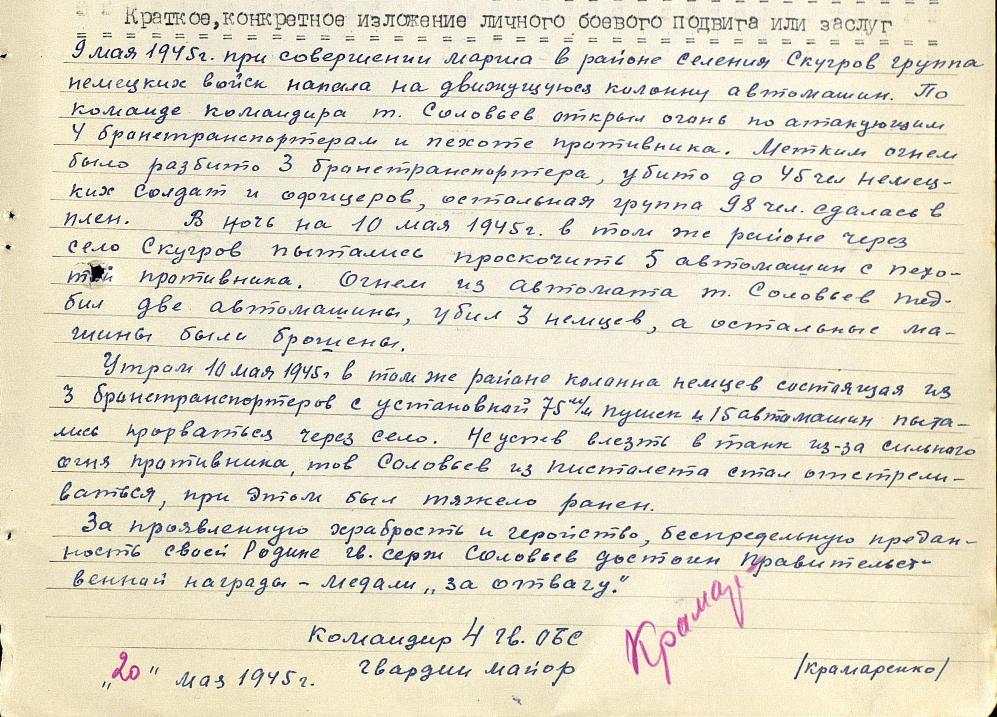 Краткое,конкретное изложение личного боевого подвига или заслуг
9 мая 1945г. при совершении марша в районе селения Скугров группа
немецких войск напала на движущуюся колонну автомашин. По
команде командира т. Соловьев открыл огонь по атакующим
4 бранетранспортерам и пехоте противника. Метким огнем
было разбито 3 бранетранспортера, убито до 45 чел немец-
ких солдат и офицеров, остальная группа 98 чел. сдалась в
плен. В ночь на 10 мая 1945г. в том же районе через
село Скугров пытались проскочить 5 автомашин с пехо-
той противника. Огнем из автомата т. Соловьев под-
бил две автомашины, убил 3 немцев, а остальные ма-
шины были брошены.
Утром 10 мая 1945г в том же районе колонна немцев состоящая из
3 бранетранспортеров с установкой 75 м/м пушек и 15 автомашин пыта-
лись прорваться через село. Не успев влезть в танк из-за сильного
огня противника, тов Соловьев из писталета стал отстрели-
ваться, при этом был тяжело ранен.
За проявленную храбрость и геройство, беспредельную предан-
ность своей Родине гв. серж Соловьев достоин Правительст-
венной награды – медали „за отвагу."
Командир 4 гв. ОБС
гвардии майор
Крамар
/Крамаренко/
„20" мая 1945г.